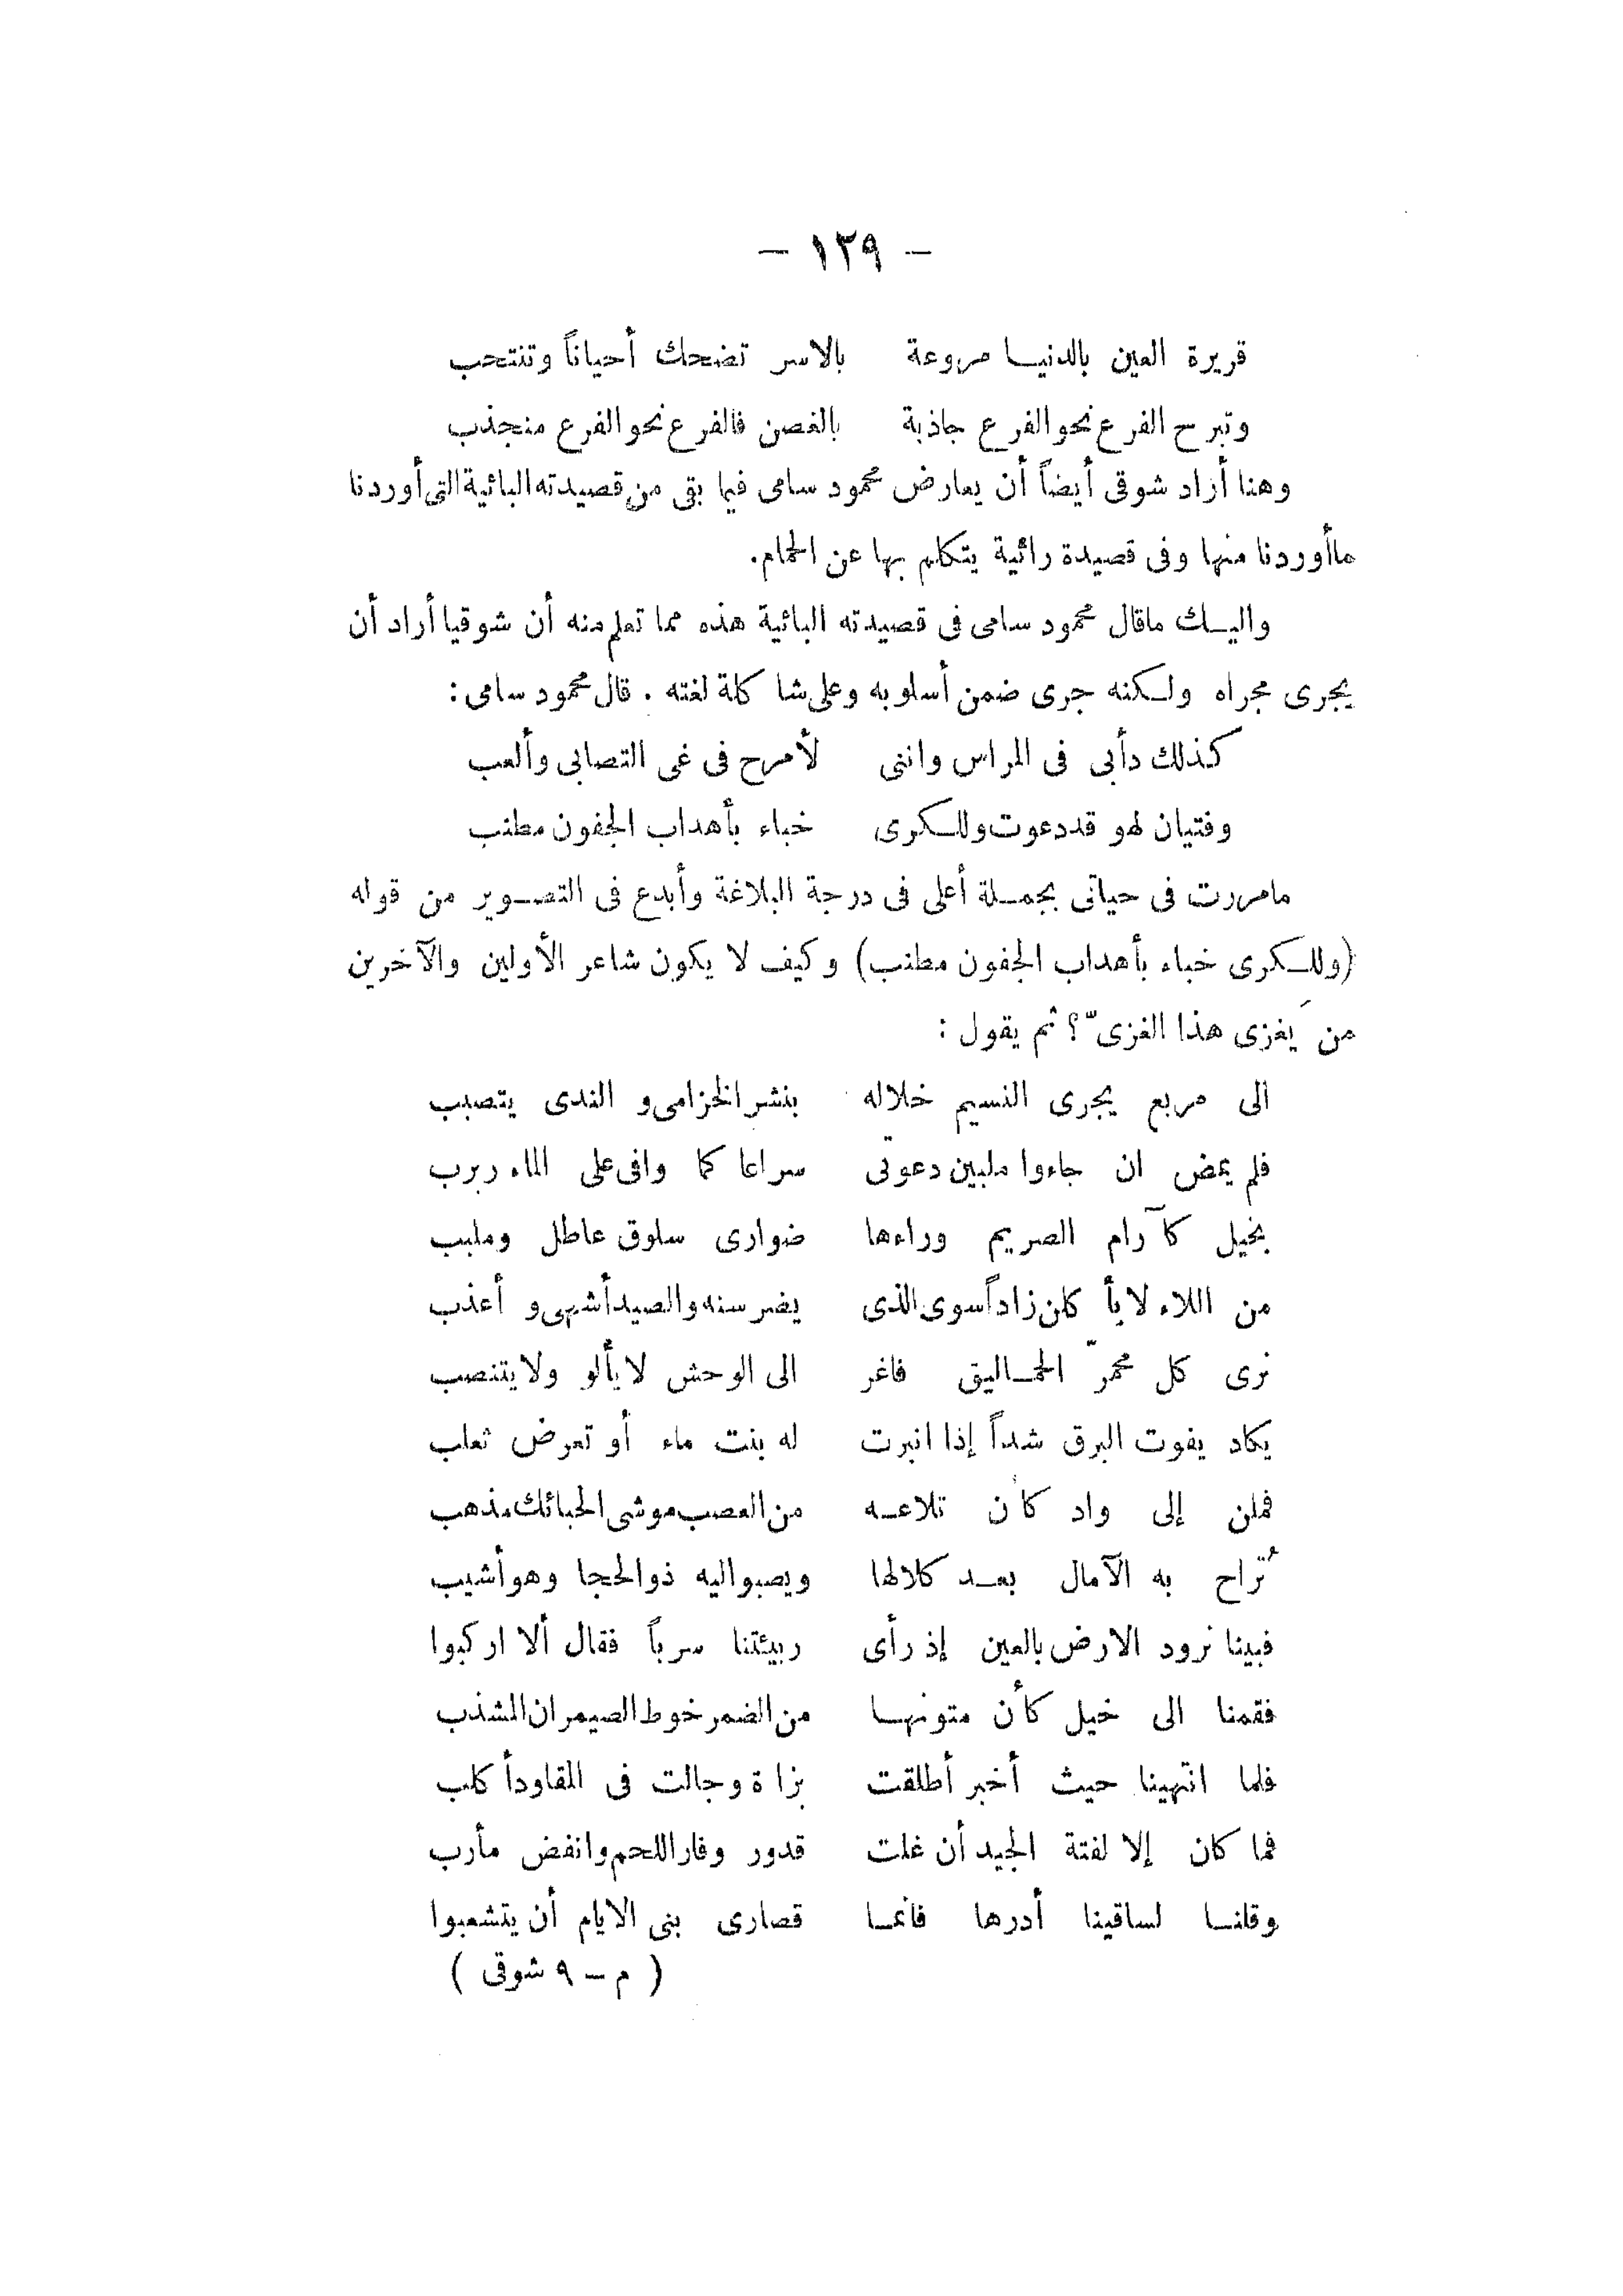 — ١٢٩ —
قريرة العين بالدنيا مروعة بالاسر تضحك أحياناً وتنتحب
وتبرح الفرع نحو الفرع جاذبة بالغصن فالفرع نحو الفرع منجذب
وهنا أراد شوقى أيضاً أن يعارض محمود سامى فيما بقى من قصيدته البائية التى أوردنا
ماأوردنا منها وفى قصيدة رائية يتكلم بها عن الحمام.
واليك ماقال محمود سامى فى قصيدته البائية هذه مما تعلم منه أن شوقيا أراد أن
يجرى مجراه ولكنه جرى ضمن أسلوبه وعلى شاكلة لغته . قال محمود سامى :
كذلك دأبى فى المراس واننى لأمرح فى غى التصابى وألعب
وفتيان لهو قد دعوت وللكرى خباء بأهداب الجفون مطنب
مامررت فى حياتى بجملة أعلى فى درجة البلاغة وأبدع فى التصوير من قوله
(وللكرى خباء بأهداب الجفون مطنب) وكيف لا يكون شاعر الأولين والآخرين
من يَغزى هذا الغزىّ؟ ثم يقول :
الى مربع يجرى النسيم خلاله بنشر الخزامى و الندى يتصبب
فلم يمض ان جاءوا ملبين دعوتى سراعا كما وافى على الماء ربرب
بخيل كآرام الصريم وراءها ضوارى سلوق عاطل وملبب
من اللاء لا يأكلن زاداً سوى الذى يضرسنه والصيد أشهى و أعذب
نرى كل محمرّ الحماليق فاغر الى الوحش لا يألو ولا يتنصب
يكاد يفوت البرق شداً إذا انبرت له بنت ماء أو تعرض ثعلب
فملن إلى واد كأن تلاعه من العصب موشى الحبائك مذهب
تُراح به الآمال بعد كلالها ويصبو اليه ذو الحجا وهو أشيب
فبينا نرود الارض بالعين إذ رأى ربيئتنا سرباً فقال ألا اركبوا
فقمنا الى خيل كأن متونها من الضمر خوط الصيمران المشذب
فلما انتهينا حيث أخبر أطلقت بزاة وجالت فى المقاود أكلب
فما كان إلا لفتة الجيد أن غلت قدور وفار اللحم وانفض مأرب
وقلنا لساقينا أدرها فانما قصارى بنى الايام أن يتشعبوا
( م — ٩ شوقى )